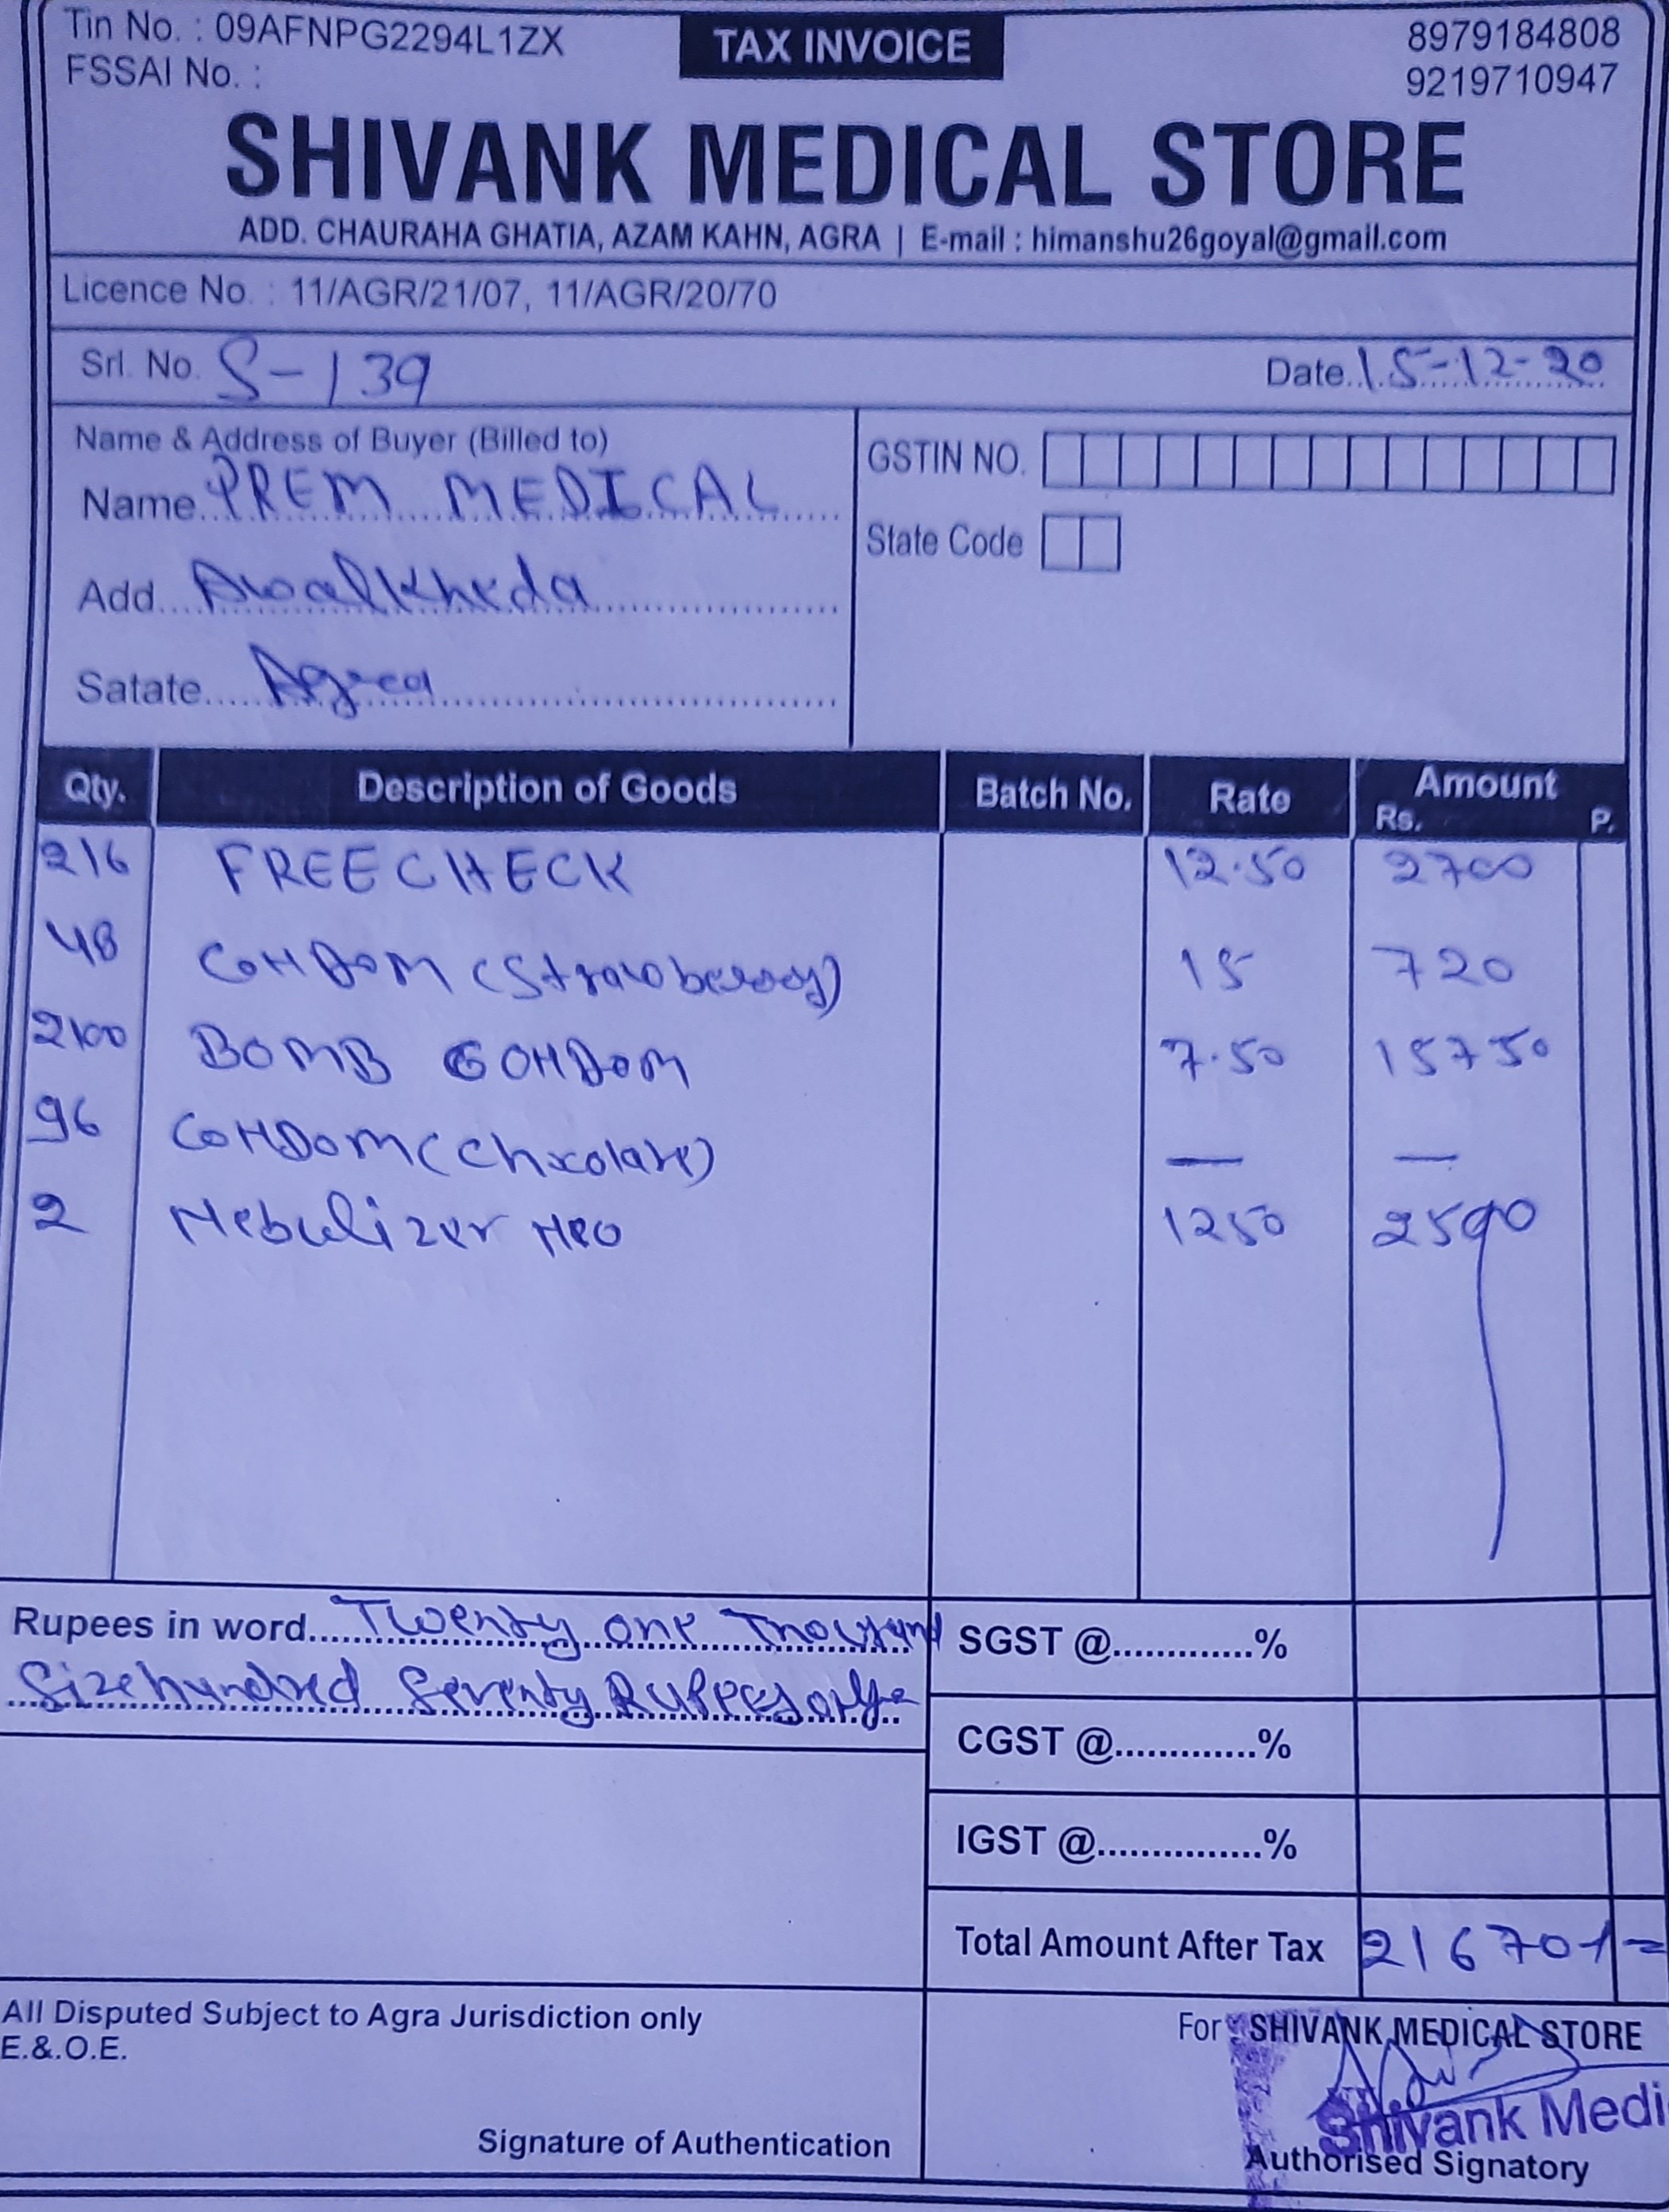 Tin No. : 09AFNPG2294L1ZX
FSSAI No. :
TAX INVOICE
8979184808
9219710947
SHIVANK MEDICAL STORE
ADD. CHAURAHA GHATIA, AZAM KAHN, AGRA | E-mail : himanshu26goyal@gmail.com
Licence No. : 11/AGR/21/07, 11/AGR/20/70
Srl. No. S-139
Date 15-12-20
Name & Address of Buyer (Billed to)
Name PREM MEDICAL
Add. Awalkheda
Satate Agra
GSTIN NO.
State Code
Qty. Description of Goods Batch No. Rate Amount
Rs. P.
216 FREECHECK 12.50 2700
48 CONDOM (Strawberry) 15 720
2100 BOMB CONDOM 7.50 15750
96 CONDOM (Chocolate) — —
2 Nebulizer 1250 2500
Rupees in word Twenty one Thousand
Sixe hundred Seventy Rupees only
SGST @.............%
CGST @.............%
IGST @...............%
Total Amount After Tax 21670/=
All Disputed Subject to Agra Jurisdiction only
E.&.O.E.
Signature of Authentication
For : SHIVANK MEDICAL STORE
Shivank Medi
Authorised Signatory